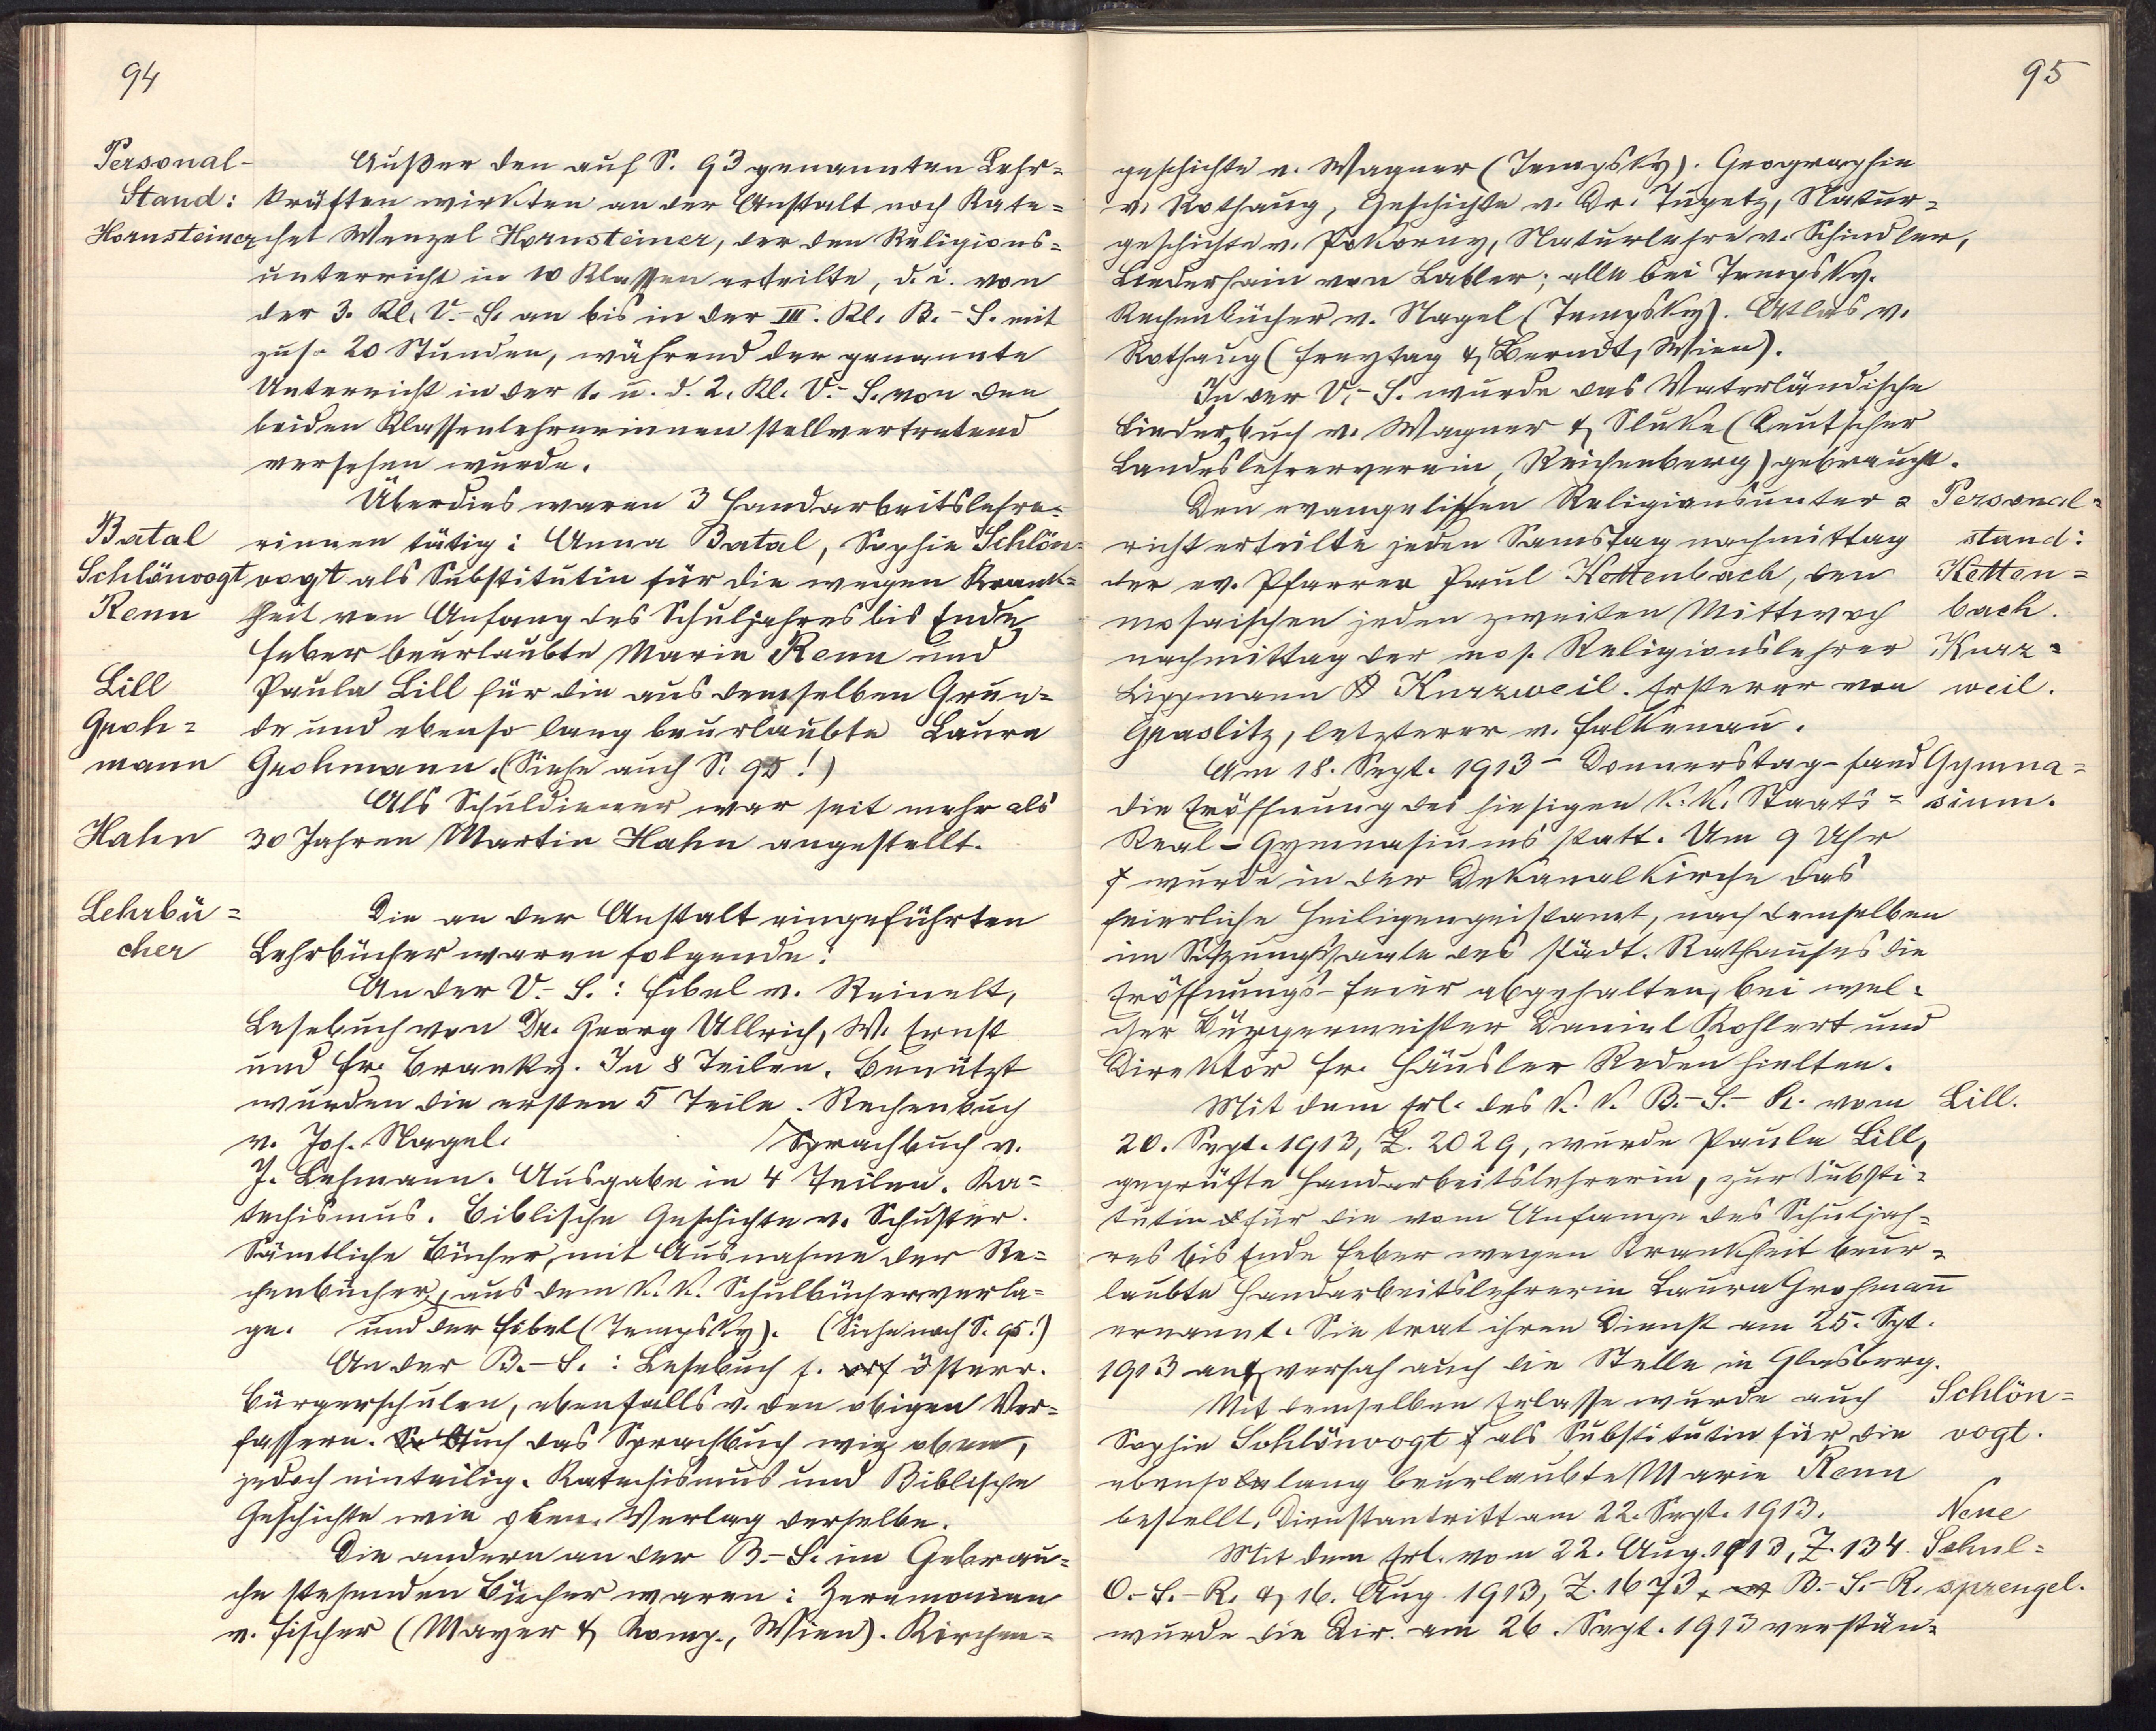 94
Personal-
Stand:
Hornsteiner
Außer den auf S. 93 genannten Lehr=
kräften wirkten an der Anstalt noch Kate=
chet Wenzel Hornsteiner, der den Religions=
unterricht in 10 Klassen erteilte, d. i. von
der 3. Kl. V.-S. an bis in der III. Kl. B.-S. mit
zus. 20 Stunden, während der genannte
Unterricht in der 1. u. d. 2. Kl. V.-S. von den
beiden Klassenlehrerinnen stellvertretend
versehen wurde.
Überdies waren 3 Handarbeitslehre=
Batal
rinnen tätig: Anna Batal, Sophie Schlön=
Schlönvogt
vogt als Substitutin für die wegen Krank=
Renn
heit von Anfang des Schuljahres bis Ende
Feber beurlaubte Marie Renn und
Lill
Paula Lill für die aus demselben Grun=
Groh=
de und ebenso lang beurlaubte Laura
mann
Grohmann. (Siehe auch S. 95!)
Als Schuldiener war seit mehr als
Hahn
30 Jahren Martin Hahn angestellt.
Lehrbü=
cher
Die an der Anstalt eingeführten
Lehrbücher waren folgende:
An der V.-S.: Fibel v. Reinelt,
Lesebuch von Dr. Georg Ullrich, W. Ernst
und Fr. Branky. In 8 Teilen. Benützt
wurden die ersten 5 Teile. Rechenbuch
v. Jos. Nagel. Sprachbuch v.
J. Lehmann. Ausgabe in 4 Teilen. Ka=
techismus. Biblische Geschichte v. Schuster.
Sämtliche Bücher, mit Ausnahme der Re=
chenbücher, aus dem k. k. Schulbücherverla=
ge. und der Fibel (Tempsky). (Siehe noch S. 95!)
An der B.-S.: Lesebuch f. österr.
Bürgerschulen, ebenfalls v. den obigen Ver=
fassern. Auch das Sprachbuch wie oben,
jedoch einteilig. Katechismus und Biblische
Geschichte wie oben. Verlag derselbe.
Die andern an der B.-S. im Gebrau=
che stehenden Bücher waren: Zeremonien
v. Fischer (Mayer & Komp., Wien). Kirchen=
95
geschichte v. Wagner (Tempsky). Geographie
v. Rothaug, Geschichte v. Dr. Tupetz, Natur=
geschichte v. Pokorny, Naturlehre v. Schindler,
Liederhain von Labler; alle bei Tempsky.
Rechenbücher v. Nagel (Tempsky). Atlas v.
Rothaug (Freytag & Berndt, Wien).
In der V.-S. wurde das Vaterländische
Liederbuch v. Wagner & Sluke (Deutscher
Landeslehrerverein, Reichenberg) gebraucht.
Den evangelischen Religionsunter=
Personal=
richt erteilte jeden Samstag nachmittag
stand:
der ev. Pfarrer Paul Kettenbach, den
Ketten=
mosaischen jeden zweiten Mittwoch
bach.
nachmittag der mos. Religionslehrer
Kurz=
Lippmann Kurzweil. Ersterer von
weil.
Graslitz, letzterer v. Falkenau.
Am 18. Sept. 1913 – Donnerstag – fand
Gymna=
die Eröffnung des hiesigen k. k. Staats=
sium.
Real-Gymnasiums statt. Um 9 Uhr
wurde in der Dekanalkirche das
feierliche Heiligengeistamt, nach demselben
im Sitzungssaale des städt. Rathauses die
Eröffnungs-Feier abgehalten, bei wel=
cher Bürgermeister Daniel Kohlert und
Direktor Fr. Häusler Reden hielten.
Mit dem Erl. des k. k. B.-S.-R. vom
Lill.
20. Sept. 1913, Z. 2029, wurde Paula Lill,
geprüfte Handarbeitslehrerin, zur Substi=
tutin für die vom Anfange des Schuljah=
res bis Ende Feber wegen Krankheit beur=
laubte Handarbeitslehrerin Laura Grohmañ
ernannt. Sie trat ihren Dienst am 25. Spt.
1913 an & versah auch die Stelle in Glasberg.
Mit demselben Erlasse wurde auch
Schlön=
Sophie Schlönvogt als Substitutin für die
vogt.
ebenso lang beurlaubte Marie Renn
bestellt. Dienstantritt am 22. Sept. 1913.
Neue
Mit dem Erl. vom 22. Aug. 1913, Z. 134.
Schul=
O.-S.-R. & 16. Aug. 1913, Z. 1673, B.-S.-R.
sprengel.
wurde die Dir. am 26. Sept. 1913 verstän=